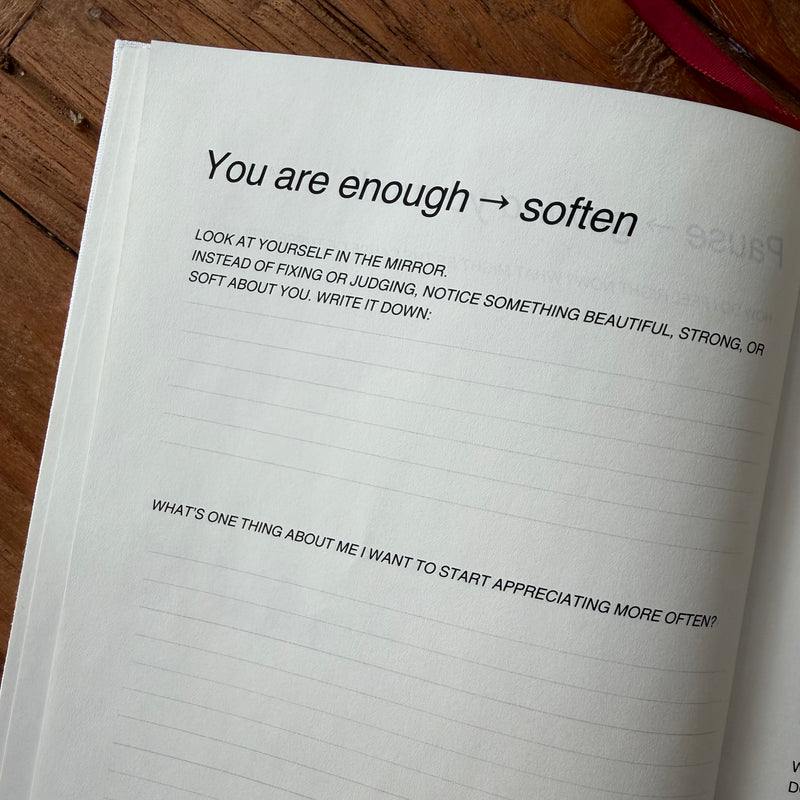 You are enough → soften
LOOK AT YOURSELF IN THE MIRROR.
INSTEAD OF FIXING OR JUDGING, NOTICE SOMETHING BEAUTIFUL, STRONG, OR
SOFT ABOUT YOU. WRITE IT DOWN:
WHAT'S ONE THING ABOUT ME I WANT TO START APPRECIATING MORE OFTEN?